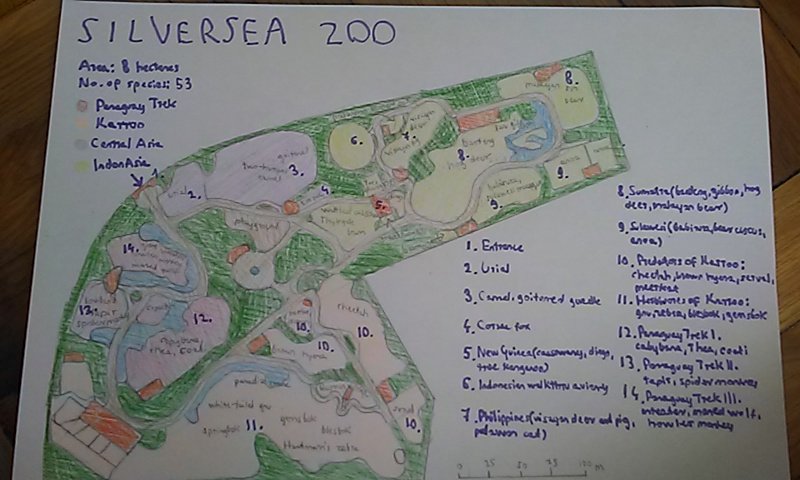 SILVERSEA ZOO
Area: 8 hectares
No. of species: 53
Paraguay Trek
Karroo
Central Asia
IndonAsia
8.
malayan sun bear
6.
visayan deer
7.
visayan pig
banteng
8.
hog deer
anoa
anoa
9.
babirusa
9.
goitured
two-humped camel
3.
urial
2.
4.
5.
playground
14.
13.
12.
capybara, rhea, coati
cheetah
10.
10.
brown hyena
10.
serval
10.
paradise crane
white-tailed gnu
gemsbok
springbok
11.
blesbok
Hartmann's zebra
1. Entrance
2. Urial
3. Camel, goitured gazelle
4. Corsac fox
5. New Guinea (cassowary, dingo, tree kangaroo)
6. Indonesian walkthru aviary
7. Philippines (visayan deer and pig, palawan cat)
8. Sumatra (banteng, gibbon, hog deer, malayan bear)
9. Sulawesi (babirusa, bear cuscus, anoa)
10. Predators of Karroo: cheetah, brown hyena, serval, meerkat
11. Herbivores of Karroo: gnu, zebra, blesbok, gemsbok
12. Paraguay Trek I. capybara, rhea, coati
13. Paraguay Trek II. tapir, spider monkey
14. Paraguay Trek III. anteater, maned wolf, howler monkey
0 25 50 75 100 m